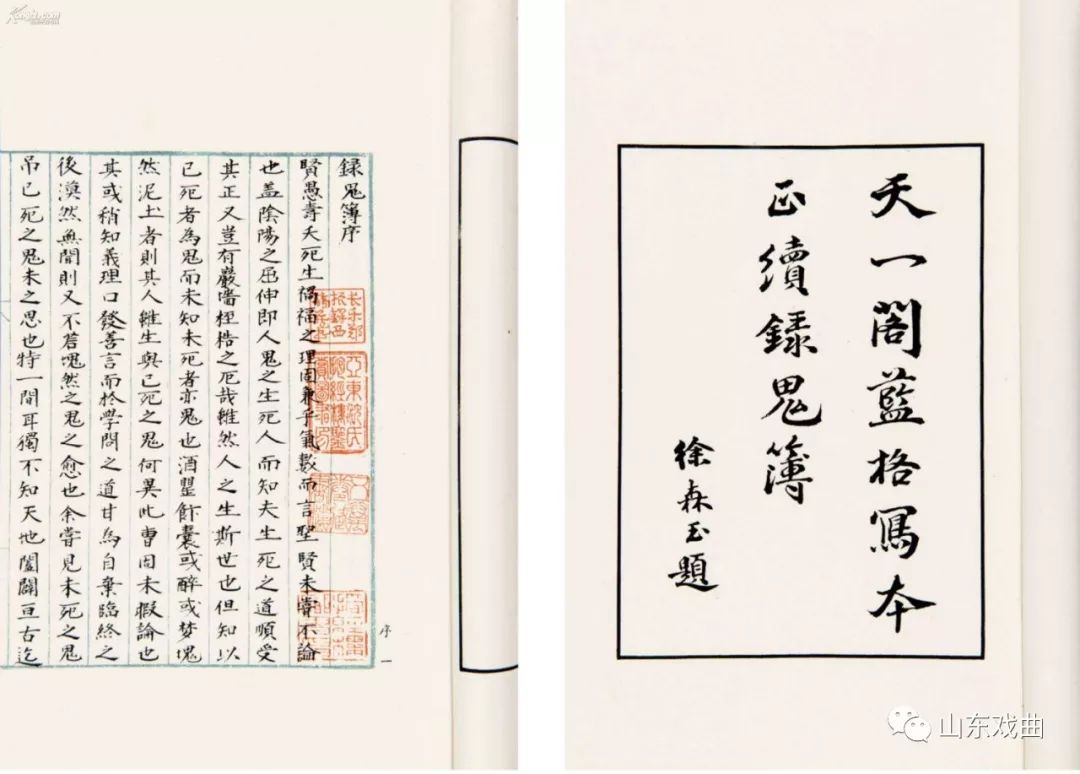 天一閣藍格寫本
正續録鬼簿
徐森玉題
録鬼簿序
賢愚壽夭死生禍福之理固兼乎氣數而言聖賢未嘗不論
也盖陰陽之屈伸即人鬼之生死人而知夫生死之道順受
其正又豈有巖墻桎梏之厄哉雖然人之生斯世也但知以
已死者為鬼而未知未死者亦鬼也酒罌飰囊或醉或梦塊
然泥土者則其人雖生與已死之鬼何異此曹固未暇論也
其或稍知義理口發善言而於學問之道甘為自棄臨終之
後漠然無聞則又不若塊然之鬼之愈也余嘗見未死之鬼
吊已死之鬼未之思也特一間耳獨不知天地闔闢亘古迄
序一
山东戏曲